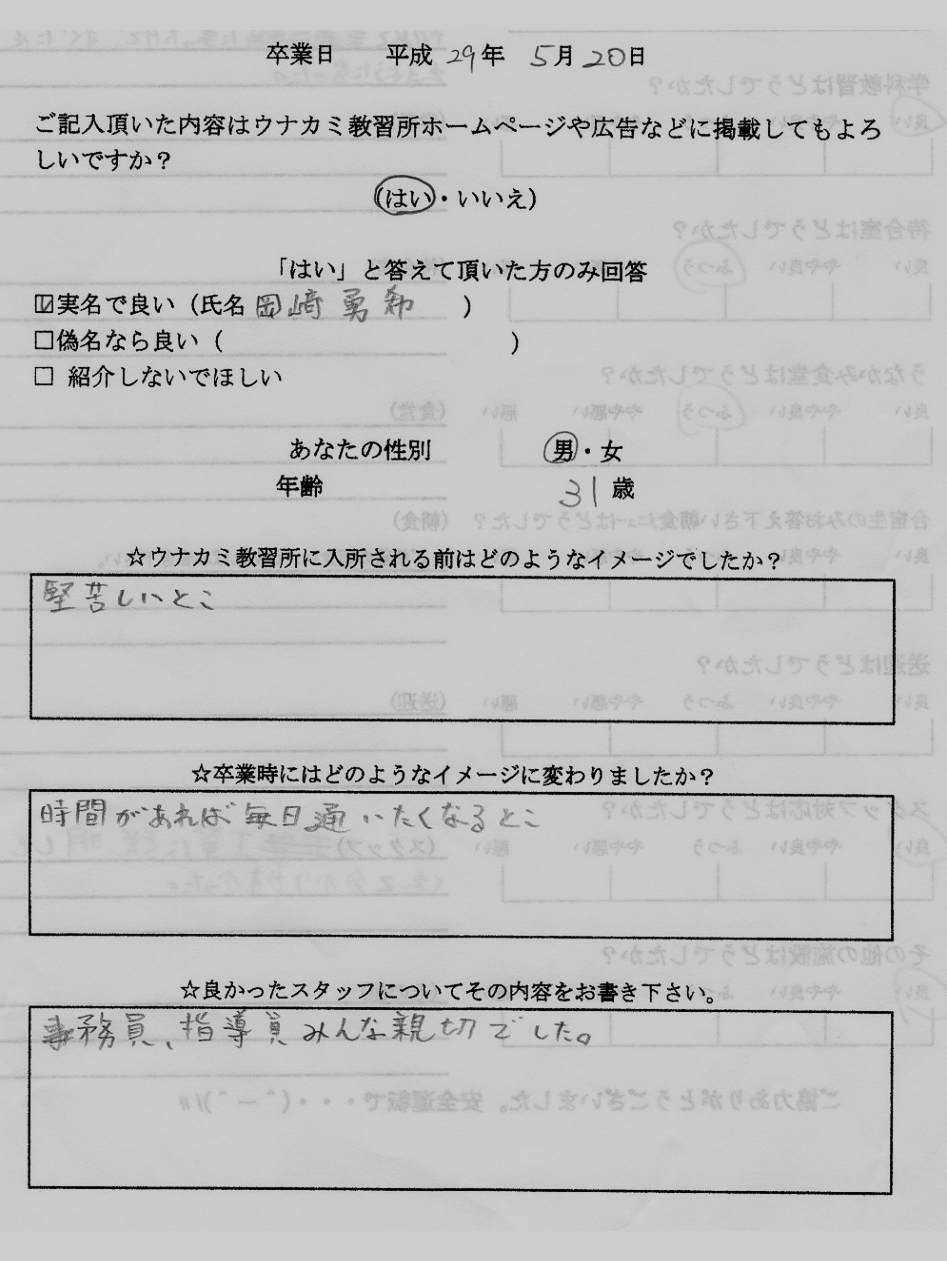 卒業日 平成 29年 5月 20日
ご記入頂いた内容はウナカミ教習所ホームページや広告などに掲載してもよろ
しいですか？
(はい・いいえ)
「はい」と答えて頂いた方のみ回答
☑実名で良い（氏名 岡崎 勇希 ）
□偽名なら良い（ ）
□ 紹介しないでほしい
あなたの性別 男・女
年齢 31歳
☆ウナカミ教習所に入所される前はどのようなイメージでしたか？
堅苦しいとこ
☆卒業時にはどのようなイメージに変わりましたか？
時間があれば毎日通いたくなるとこ
☆良かったスタッフについてその内容をお書き下さい。
事務員、指導員みんな親切でした。